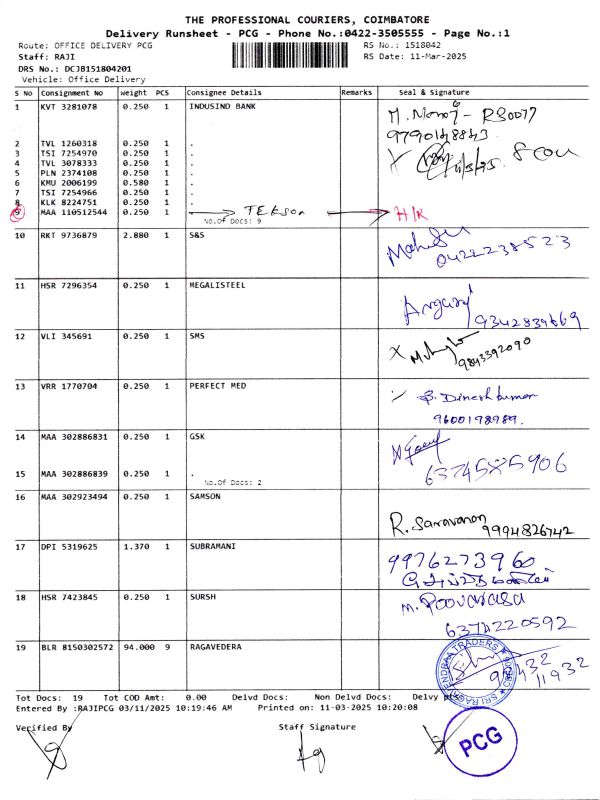 THE PROFESSIONAL COURIERS, COIMBATORE
Delivery Runsheet - PCG - Phone No.:0422-3505555 - Page No.:1
Route: OFFICE DELIVERY PCG RS No.: 1518042
Staff: RAJI RS Date: 11-Mar-2025
DRS No.: DCJB151804201
Vehicle: Office Delivery
S No Consignment No Weight PCS Consignee Details Remarks Seal & Signature
1 KVT 3281078 0.250 1 INDUSIND BANK
9790148843
2 TVL 1260318 0.250 1 .
3 TSI 7254970 0.250 1 .
4 TVL 3078333 0.250 1 .
5 PLN 2374108 0.250 1 .
6 KMU 2006199 0.580 1 .
7 TSI 7254966 0.250 1 .
8 KLK 8224751 0.250 1 .
9 MAA 110512544 0.250 1 H/R
No.Of Docs: 9
10 RKT 9736879 2.880 1 S&S
0422238523
11 HSR 7296354 0.250 1 MEGALISTEEL
9342839669
12 VLI 345691 0.250 1 SMS
9843392090
13 VRR 1770704 0.250 1 PERFECT MED
Dinesh kumar
9600198989.
14 MAA 302886831 0.250 1 GSK
6374585906
15 MAA 302886839 0.250 1 .
No.Of Docs: 2
16 MAA 302923494 0.250 1 SAMSON
R. Saravanan 9994826742
17 DPI 5319625 1.370 1 SUBRAMANI
9976273960
18 HSR 7423845 0.250 1 SURSH
M. Poovarasa
6374220592
19 BLR 8150302572 94.000 9 RAGAVEDERA
Tot Docs: 19 Tot COD Amt: 0.00 Delvd Docs: Non Delvd Docs:
Entered By :RAJIPCG 03/11/2025 10:19:46 AM Printed on: 11-03-2025 10:20:08
Verified By Staff Signature
PCG